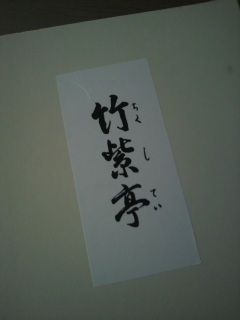 竹紫亭
ちくしてい